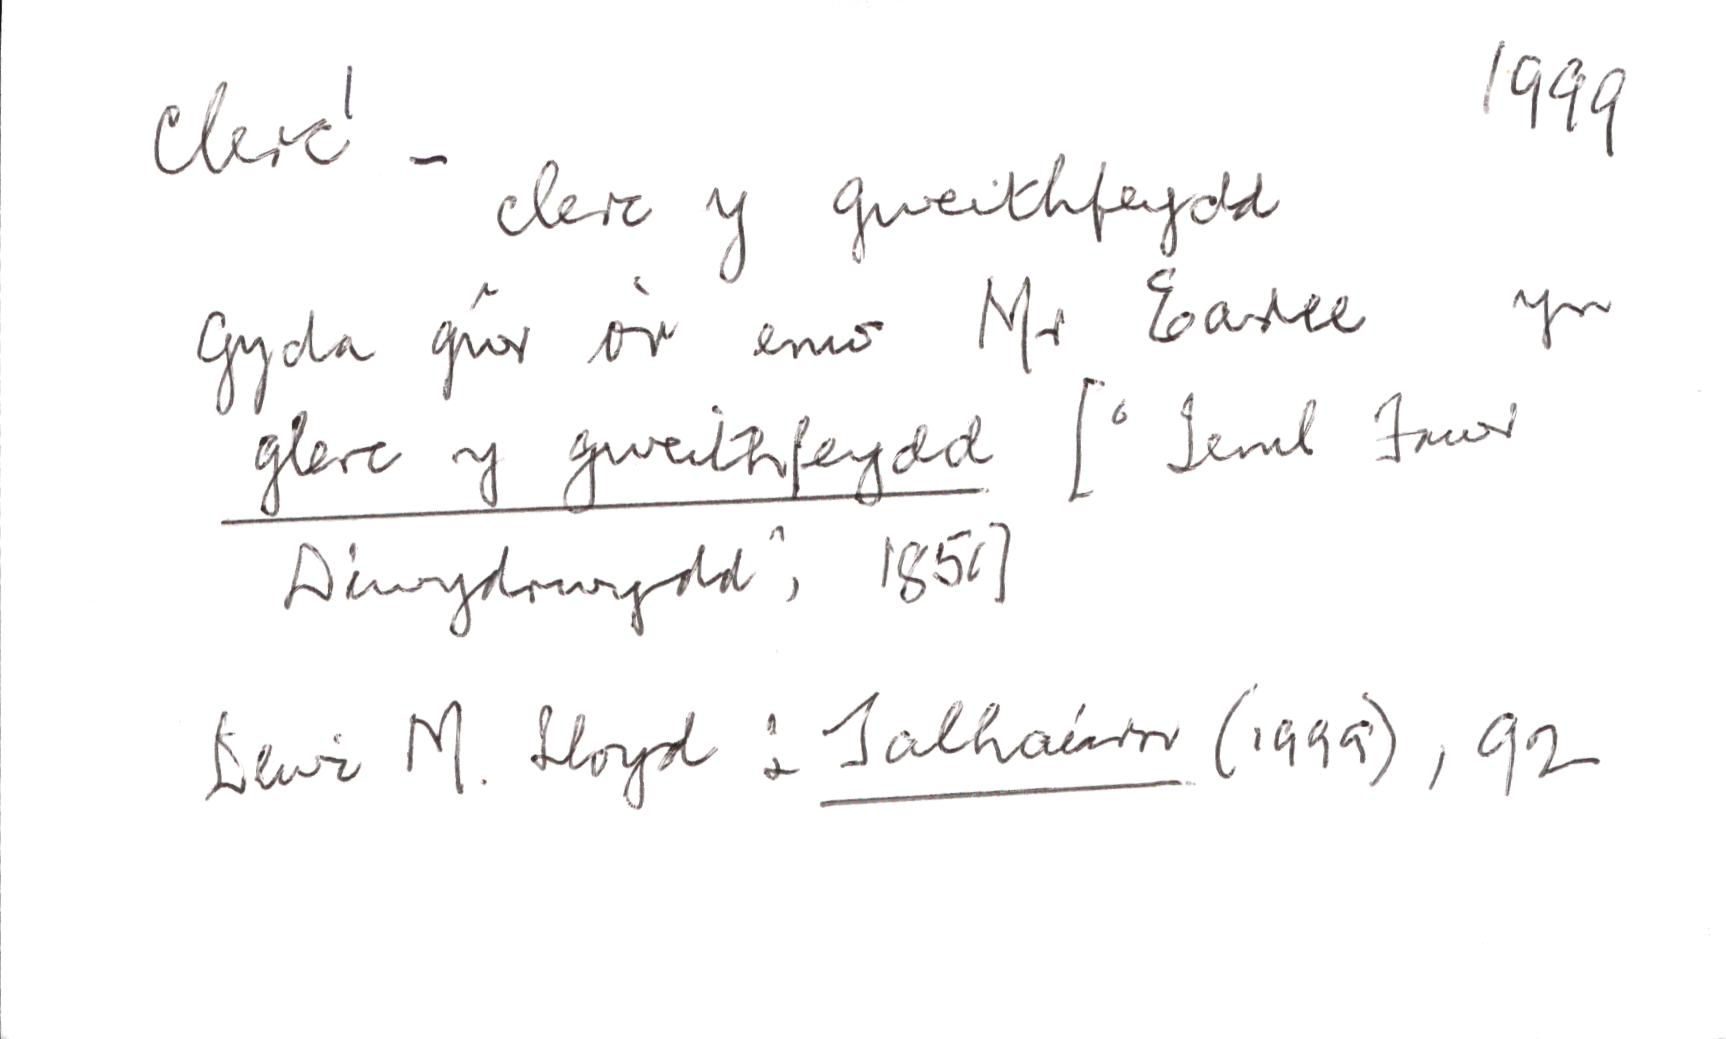 clerc¹ - 1999
clerc y gweithfeydd
Gyda gŵr o'r enw Mr Earee yn
glerc y gweithfeydd ['Teml Fawr
Diwydrwydd', 1851]
Dewi M. Lloyd : Talhaiarn (1999), 92